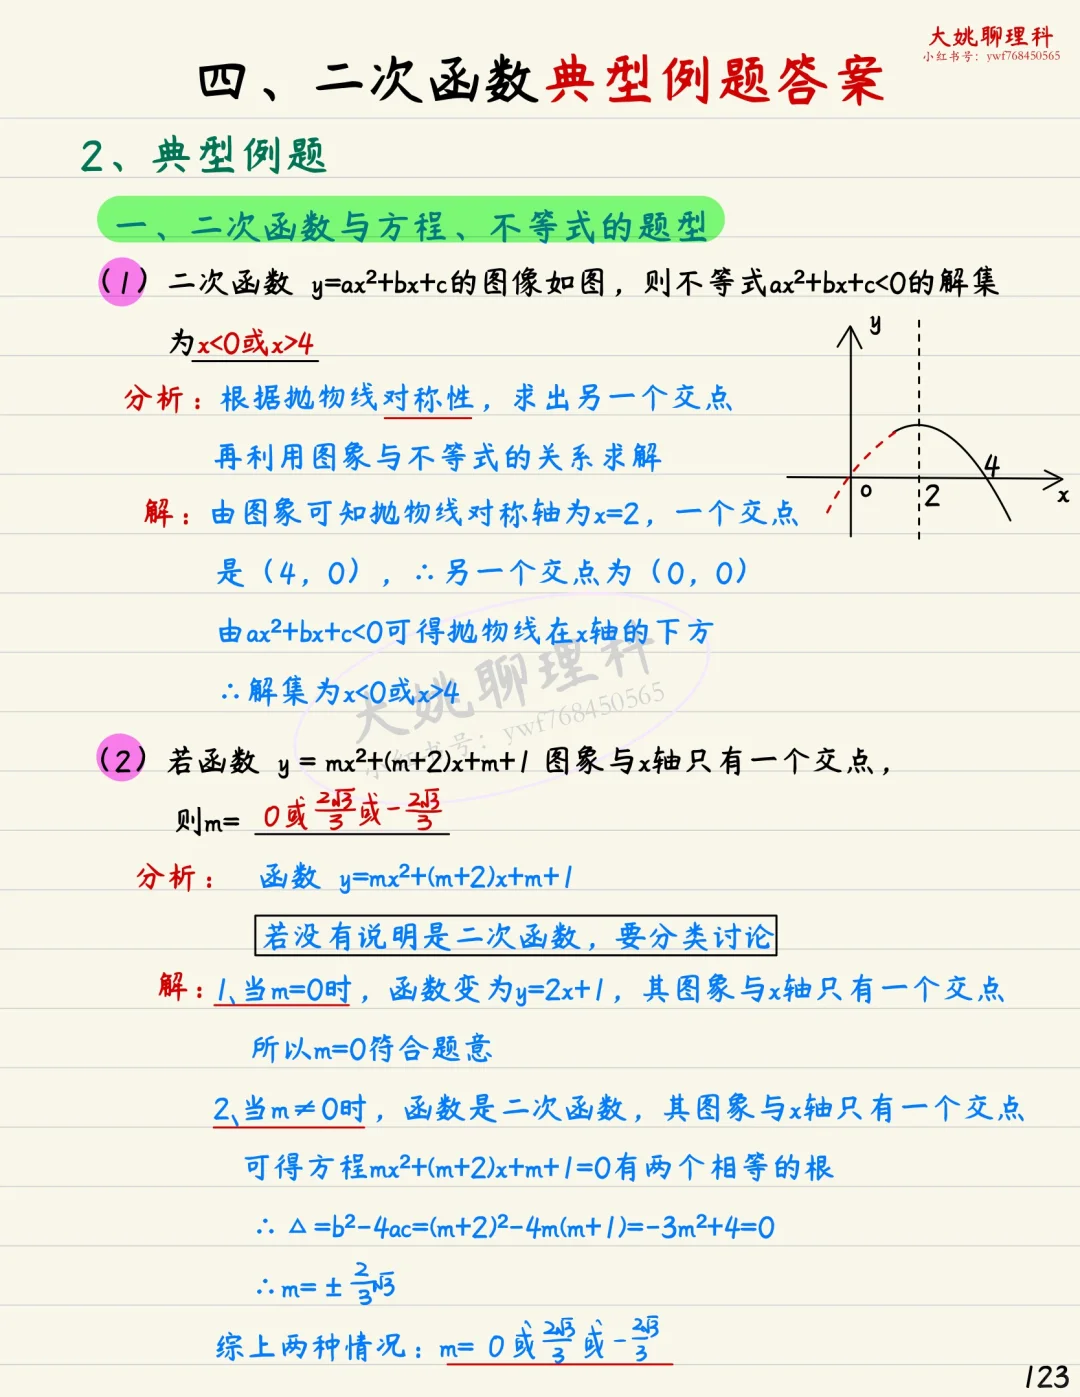 大姚聊理科
小红书号：ywf768450565
四、二次函数典型例题答案
2、典型例题
一、二次函数与方程、不等式的题型
(1) 二次函数 y=ax²+bx+c的图像如图，则不等式ax²+bx+c<0的解集
为x<0或x>4
分析：根据抛物线对称性，求出另一个交点
再利用图象与不等式的关系求解
解：由图象可知抛物线对称轴为x=2，一个交点
是（4，0），∴另一个交点为（0，0）
由ax²+bx+c<0可得抛物线在x轴的下方
∴解集为x<0或x>4
y
4
0
2
x
大姚聊理科
小红书号：ywf768450565
(2) 若函数 y = mx²+(m+2)x+m+1 图象与x轴只有一个交点，
则m= 0或2√3/3或-2√3/3
分析： 函数 y=mx²+(m+2)x+m+1
若没有说明是二次函数，要分类讨论
解：1、当m=0时，函数变为y=2x+1，其图象与x轴只有一个交点
所以m=0符合题意
2、当m≠0时，函数是二次函数，其图象与x轴只有一个交点
可得方程mx²+(m+2)x+m+1=0有两个相等的根
∴ △=b²-4ac=(m+2)²-4m(m+1)=-3m²+4=0
∴m=±2/3√3
综上两种情况：m= 0或2√3/3或-2√3/3
123